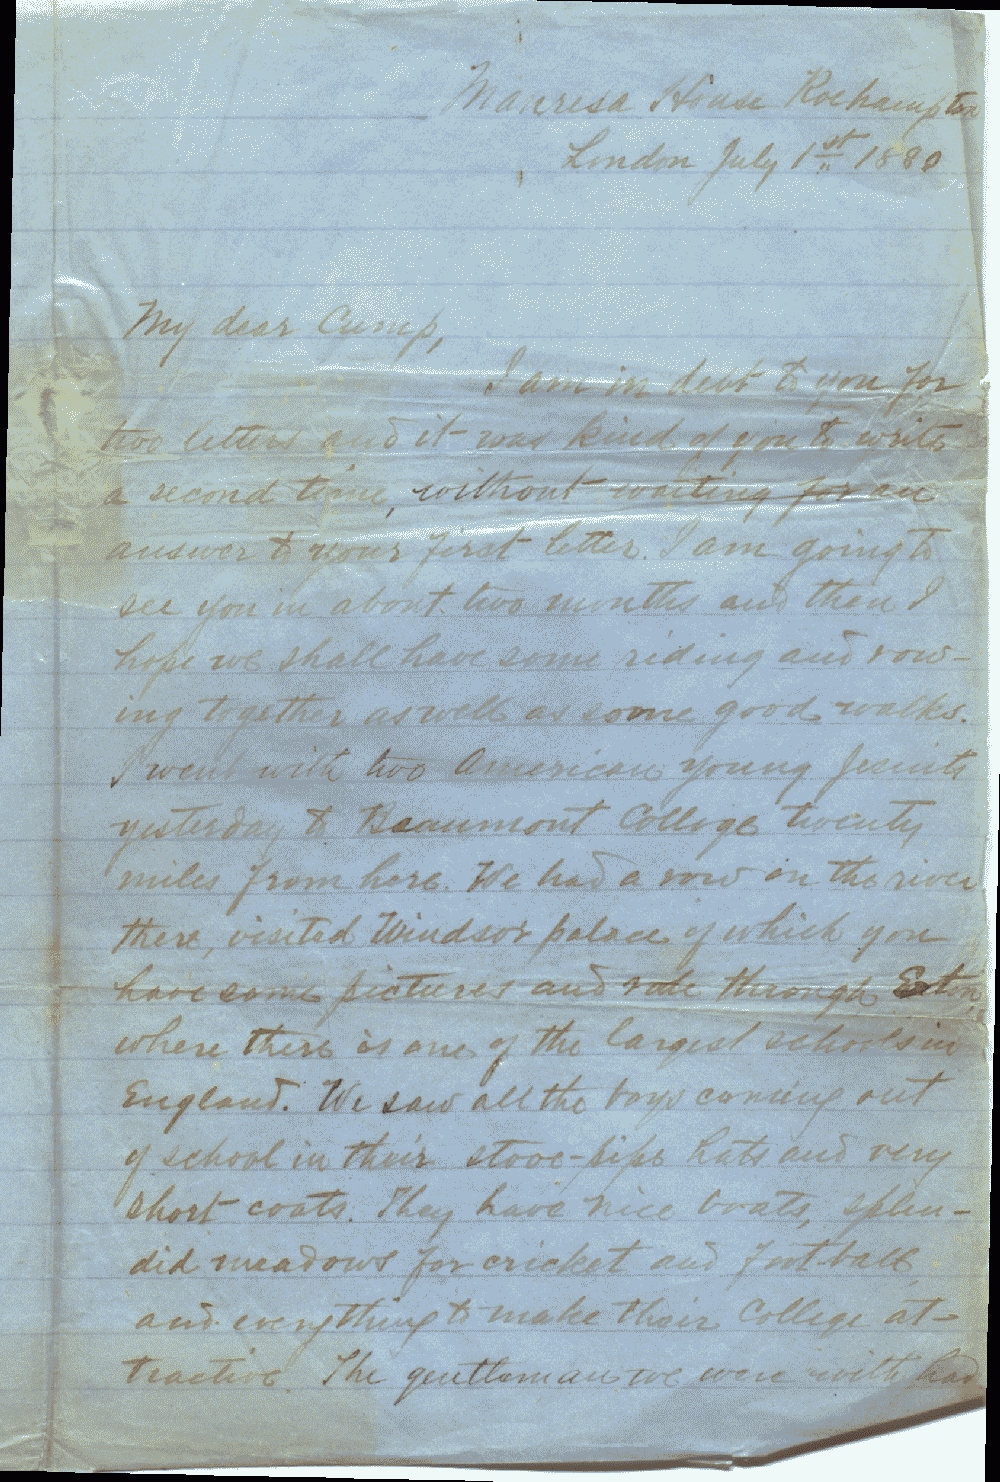 Manresa House Roehampton
London July 1st 1880
My dear Cump,
I am in debt to you for
two letters and it was kind of you to write
a second time, without waiting for an
answer to your first letter. I am going to
see you in about two months and then I
hope we shall have some riding and row-
ing together as well as some good walks.
I went with two American young Jesuits
yesterday to Beaumont College twenty
miles from here. We had a row on the river
there, visited Windsor palace of which you
have some pictures and rode through Eton,
where there is one of the largest schools in
England. We saw all the boys coming out
of school in their stove-pipe hats and very
short coats. They have nice boats, splen-
did meadows for cricket and football
and everything to make their College at-
tractive. The gentleman we were with had